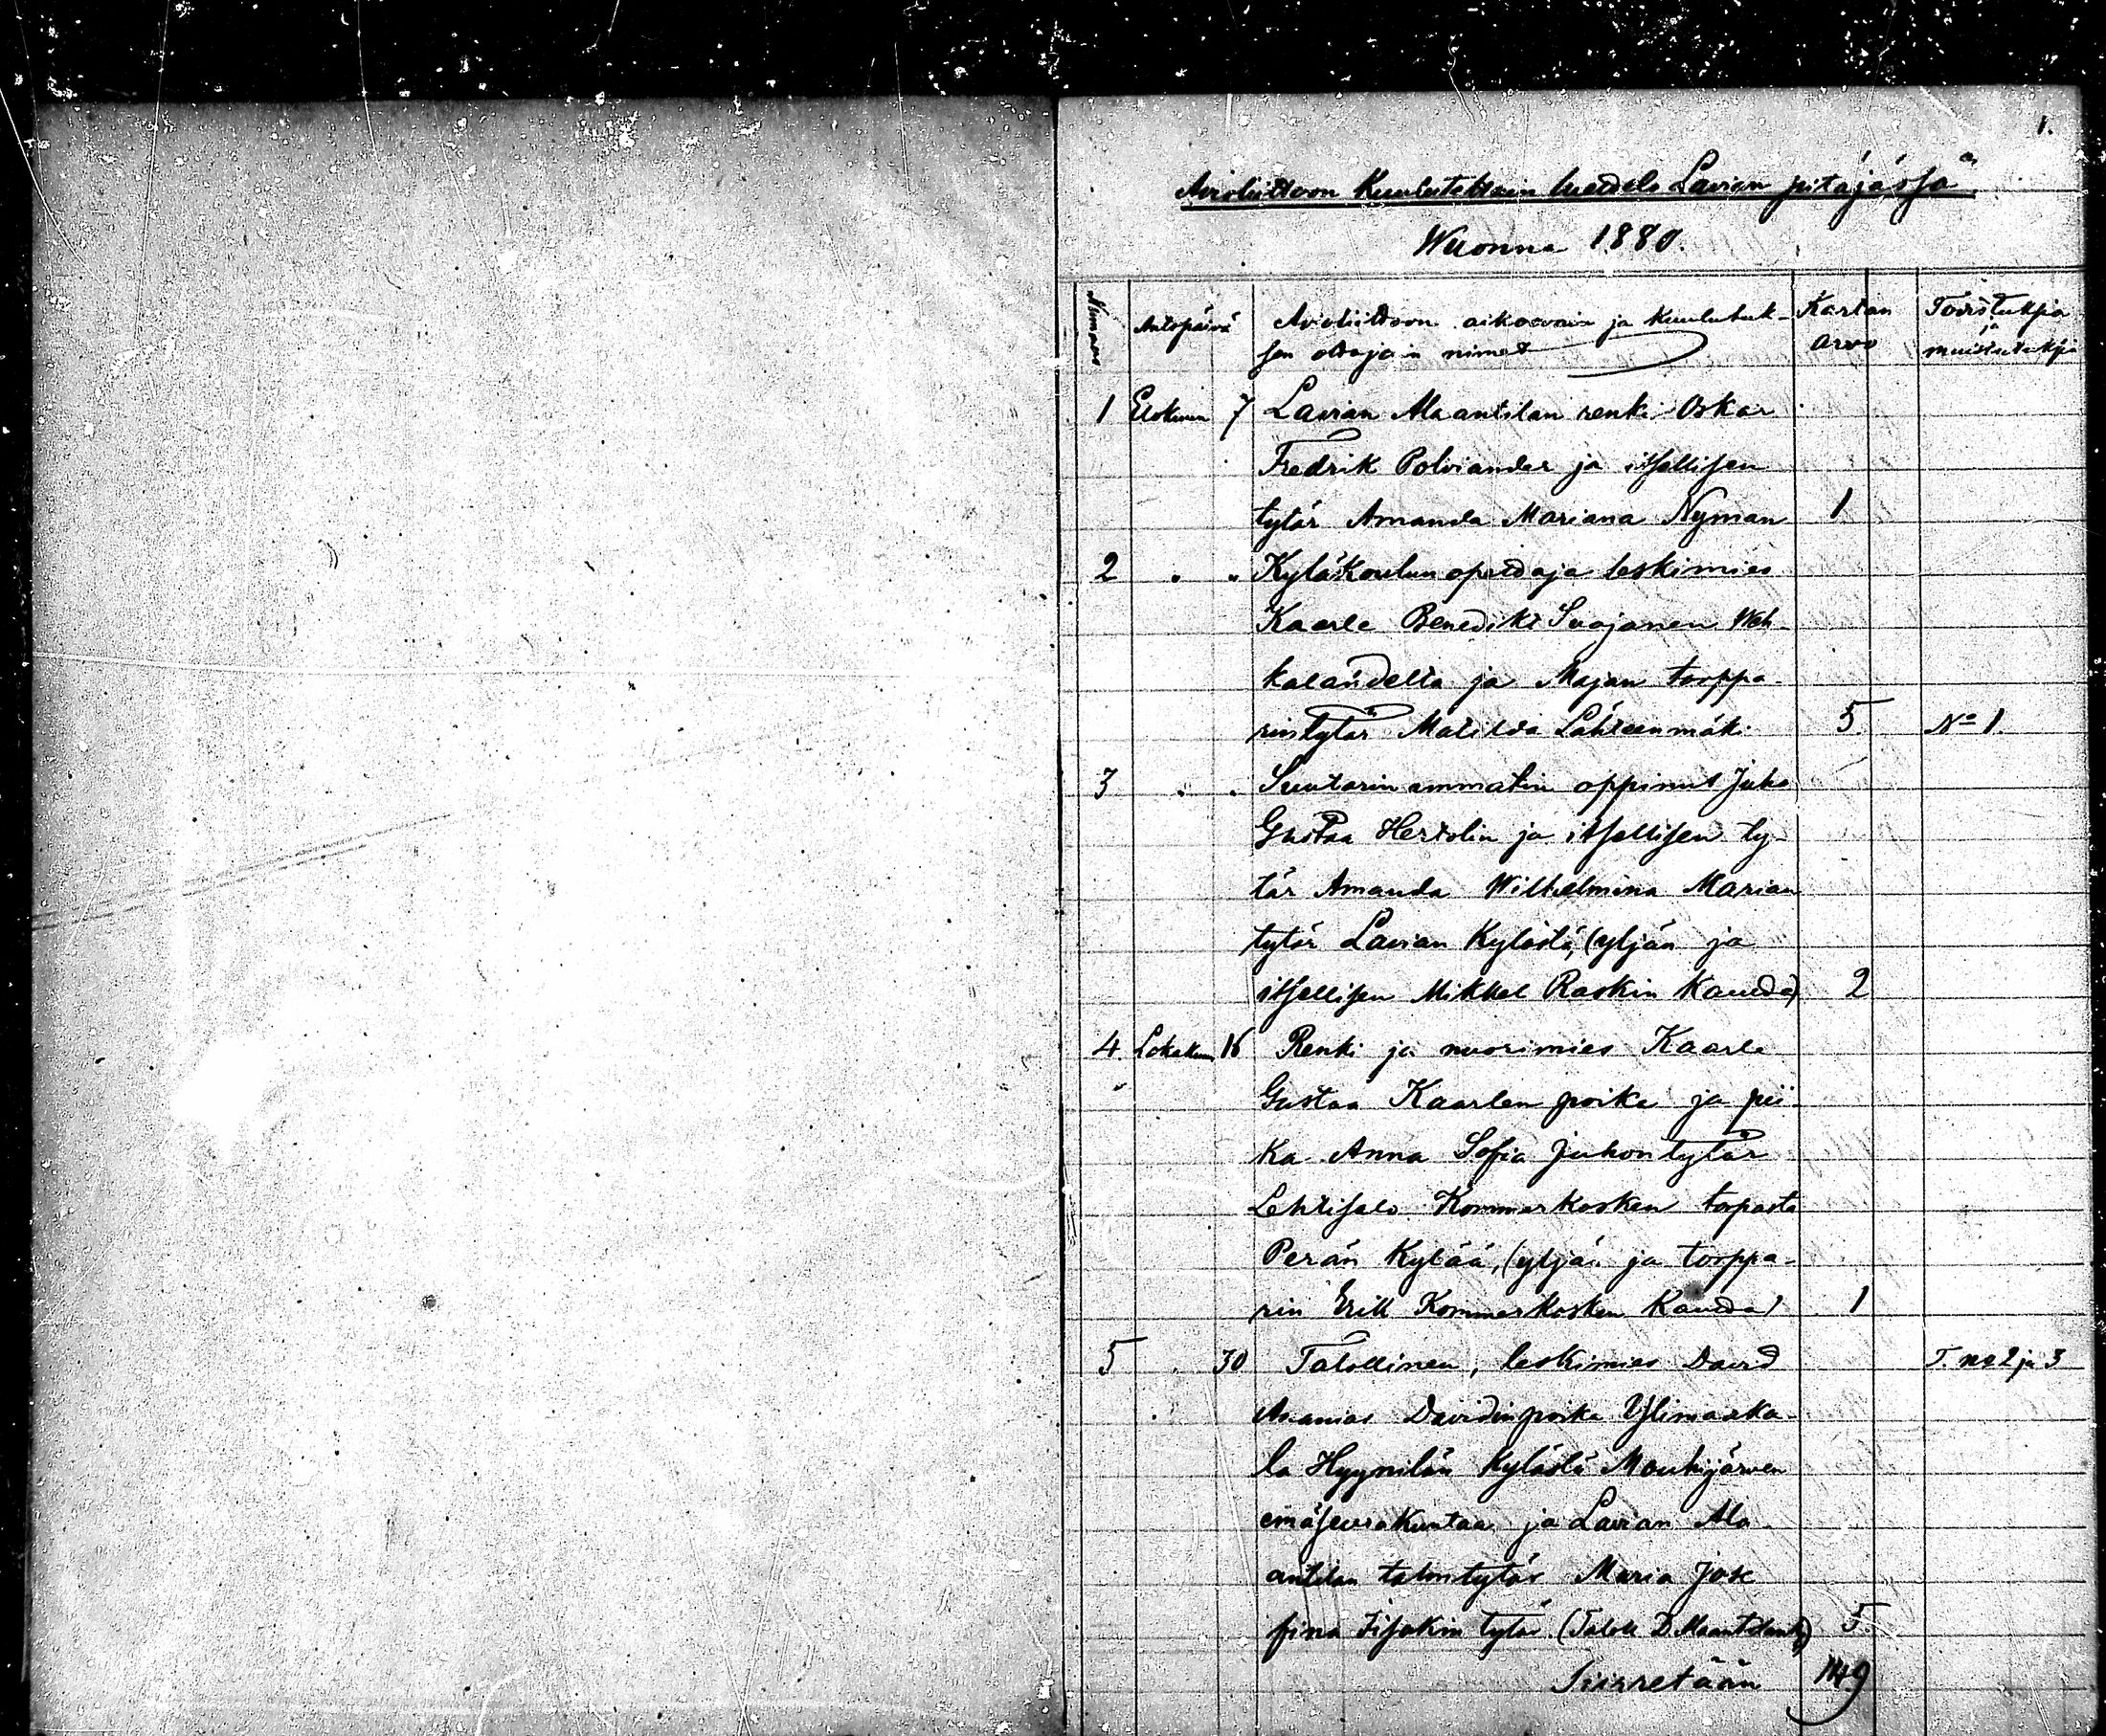 1.
Avioliittoon Kuulutettain luettelo Lavian pitäjässä
Wuonna 1880.
Numero Antopäivä Avioliittoon aikovain ja kuulutuk- Kartan Toistuksia
sen ottajain nimet arvo ja muistutuksia
1 Elokuun 7 Lavian Alaantilan renki Oskar
Fredrik Polviander ja itsellisen
tytär Amanda Mariana Nyman 1
2 " " Kyläkoulun opettaja leskimies
Kaarle Benedikt Suojanen Weh-
kalahdelta ja Majan torppa-
rintytär Matilda Lähteenmäki 5. No 1.
3 " " Suutarin ammatin oppinut Juho
Gustaa Hertolin ja itsellisen ty-
tär Amanda Wilhelmina Marian
tytär Lavian Kylästä, (yljän ja
itsellisen Mikkel Raskin kautta) 2
4. Lokakuun 16 Renki ja nuorimies Kaarle
Gustaa Kaarlen poika ja pii-
ka Anna Sofia Juhon tytär
Lehtisalo Kommerkosken torpasta
Perän Kylää, (yljän ja torppa-
rin Erik Kommerkosken kautta) 1
5 " 30 Talollinen, leskimies David
Ananias Davidinpoika Ylimaska-
la Hyynilän kylästä Mouhijärven
emäseurakuntaa ja Lavian Ala-
antilan talontytär Maria Jose
fina Iisakin tytär. (Talok D 5.
Siirretään 149
T. no 2 ja 3